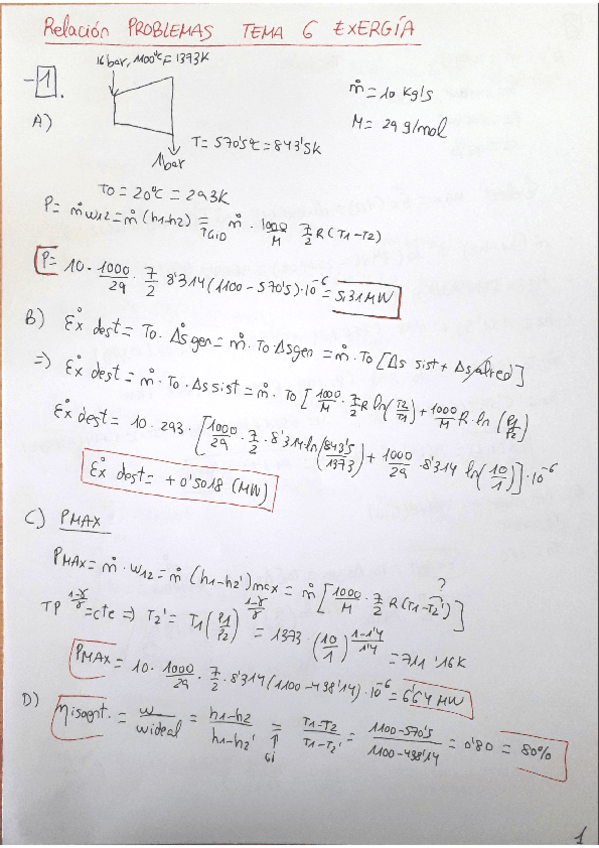 Relación PROBLEMAS TEMA 6 EXERGÍA
16bar, 1100°C = 1373K
-1.
ṁ = 10 Kg/s
A)
M = 29 g/mol
T = 570'5°C = 843'5K
1bar
T0 = 20°C = 293K
P = ṁ w12 = ṁ (h1-h2) = TGID ṁ · 1000/M 7/2 R (T1-T2)
P = 10 · 1000/29 · 7/2 8'314 (1100-570'5)·10^-6 = 5,31 MW
B) Ėx dest = T0 · Δṡgen = ṁ · T0 · Δsgen = ṁ · T0 [Δs sist + Δs alred]
=) Ėx dest = ṁ · T0 · Δs sist = ṁ · T0 [1000/M · 7/2 R ln(T2/T1) + 1000/M R · ln (P1/P2)]
Ėx dest = 10 · 293 · [1000/29 · 7/2 · 8'314 ln(843'5/1373) + 1000/29 · 8'314 ln(10/1)] · 10^-6
Ėx dest = + 0'5018 (MW)
C) PMAX
PMAX = ṁ · w12 = ṁ (h1-h2')max = ṁ [1000/M · 7/2 R (T1-T2')] ?
TP^(1-γ/γ) = cte => T2' = T1 (P1/P2)^(1-γ/γ) = 1373 · (10/1)^(1-1'4/1'4) = 711'16K
PMAX = 10 · 1000/29 · 7/2 · 8'314 (1100-438'14) · 10^-6 = 6'64 MW
D) ηisoent. = w/wideal = h1-h2/h1-h2' = GI T1-T2/T1-T2' = 1100-570'5/1100-438'14 = 0'80 = 80%
1